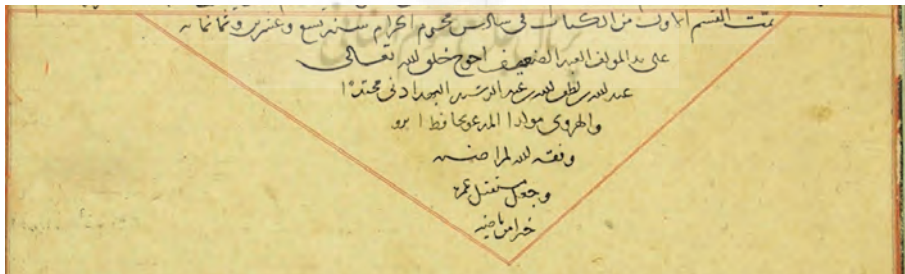 تمت القسم الاول من الكتاب فى سادس محرم الحرام سنه تسع وعشرين وثمانمائه
على يد المولف العبد الضعيف احوج خلق الله تعالى
عبد الله بن لطف الله بن عبد الرشيد البهدادنى محتدًا
والهروى مولدا المدعو بحافظ ابرو
وفقه الله لمراضيه
وجعل مستقبل عمره
خيرا من ماضيه